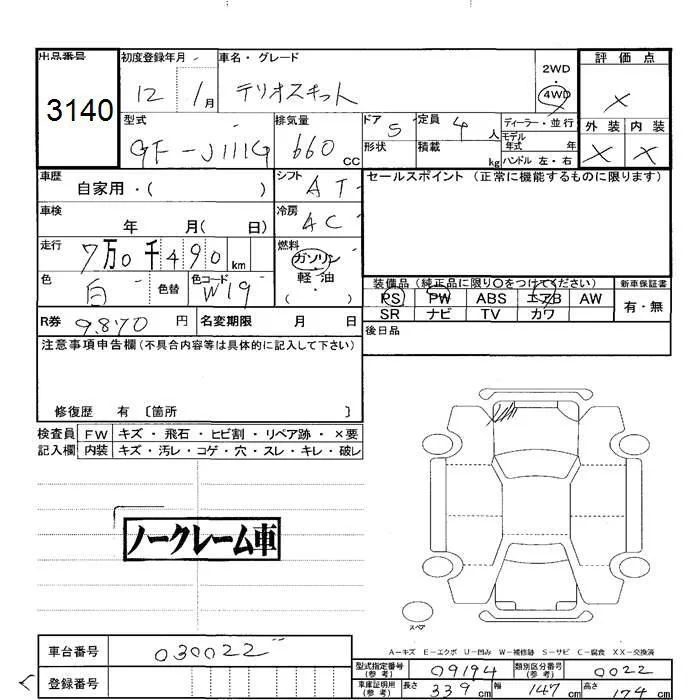 出品番号 初度登録年月 車名・グレード 2WD 評価点
3140 12 1月 テリオスキット 4WD ×
型式 排気量 ドア 5 定員 4人 ディーラー・並行 外装 内装
GF-J111G 660cc 形状 積載 kg モデル年式 年 × ×
ハンドル 左・右
車歴 自家用・( ) シフト AT セールスポイント (正常に機能するものに限ります)
車検 年 月( 日) 冷房 AC
走行 7万0千490km 燃料 ガソリン・軽油
色 白 色替 色コード W19 装備品 (純正品に限り○をつけてください) 新車保証書
PS PW ABS エアB AW 有・無
R券 9.870円 名変期限 月 日 SR ナビ TV カワ
後日品
注意事項申告欄 (不具合内容等は具体的に記入して下さい)
修復歴 有 〔箇所 〕
検査員 FW キズ・飛石・ヒビ割・リペア跡・×要
記入欄 内装 キズ・汚レ・コゲ・穴・スレ・キレ・破レ
ノークレーム車
スペア
A-キズ E-エクボ U-凹み W-補修跡 S-サビ C-腐食 XX-交換済
車台番号 030022
型式指定番号(参考) 09194 類別区分番号(参考) 0022
登録番号
車庫証明用(参考) 長さ 339cm 幅 147cm 高さ 174cm